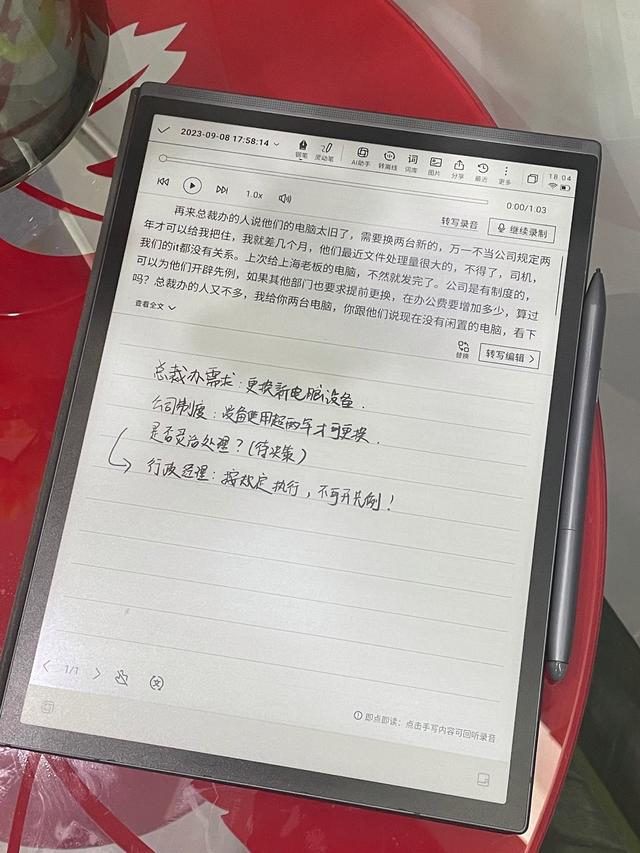 2023-09-08 17:58:14
钢笔 灵动笔 AI助手 转离线 词库 图片 分享 最近 更多
18:04
1.0x
0:00/1:03
转写录音 继续录制
再来总裁办的人说他们的电脑太旧了，需要换两台新的，万一不当公司规定两
年才可以给我把住，我就差几个月，他们最近文件处理量很大的，不得了，司机，
我们的it都没有关系。上次给上海老板的电脑，不然就发完了。公司是有制度的，
可以为他们开辟先例，如果其他部门也要求提前更换，在办公费要增加多少，算过
吗？总裁办的人又不多，我给你两台电脑，你跟他们说现在没有闲置的电脑，看下
查看全文
替换 转写编辑
总裁办需求：更换新电脑设备.
公司制度：设备使用超两年才可更换.
是否灵活处理？(待决策)
行政经理：按规定执行，不可开先例！
1/1
即点即读：点击手写内容可回听录音